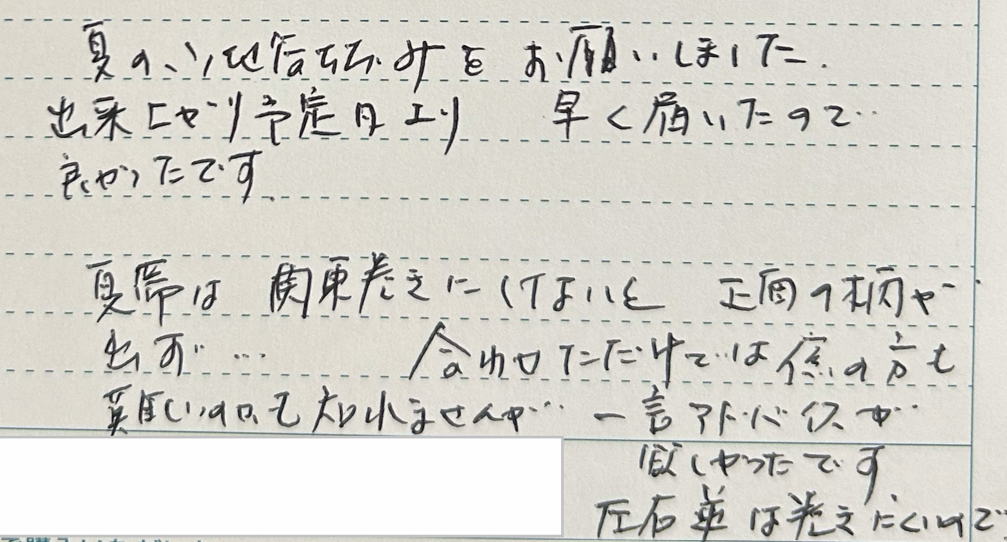 夏の お願いしました.
出来上がり予定日より 早く届いたので…
良かったです
夏帯は 関東巻きにしないと 正面の柄が
出ず… 合わせただけでは の方も
かも知れませんが… 一言アドバイスが
欲しかったです
左右逆は巻きにくいので